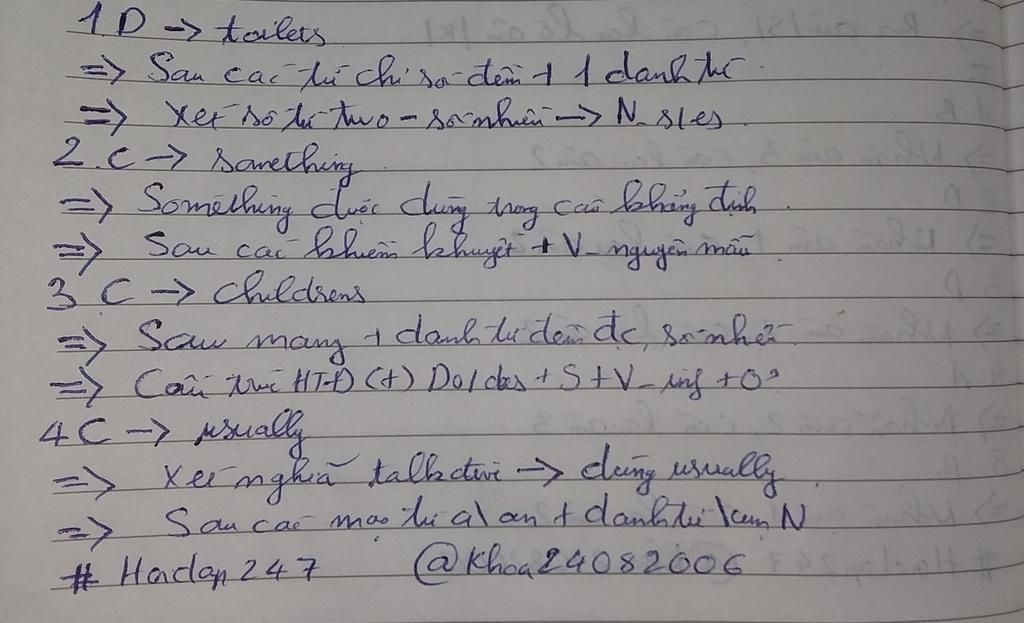 1 D -> toilets
=> Sau các từ chỉ số đếm + 1 danh từ.
=> Xét số từ two - số nhiều -> N_s/es
2. C -> something
=> Something được dùng trong câu khẳng định
=> Sau các khiếm khuyết + V_nguyên mẫu
3 C -> childrens
=> Sau many + danh từ đếm đc, số nhiều.
=> Cấu trúc HTĐ (+) Do/does + S + V_inf + O?
4 C -> usually
=> Xét nghĩa talkative -> dùng usually
=> Sau các mạo từ a\an + danh từ \cụm N
# Hoclap247 @Khoa24082006